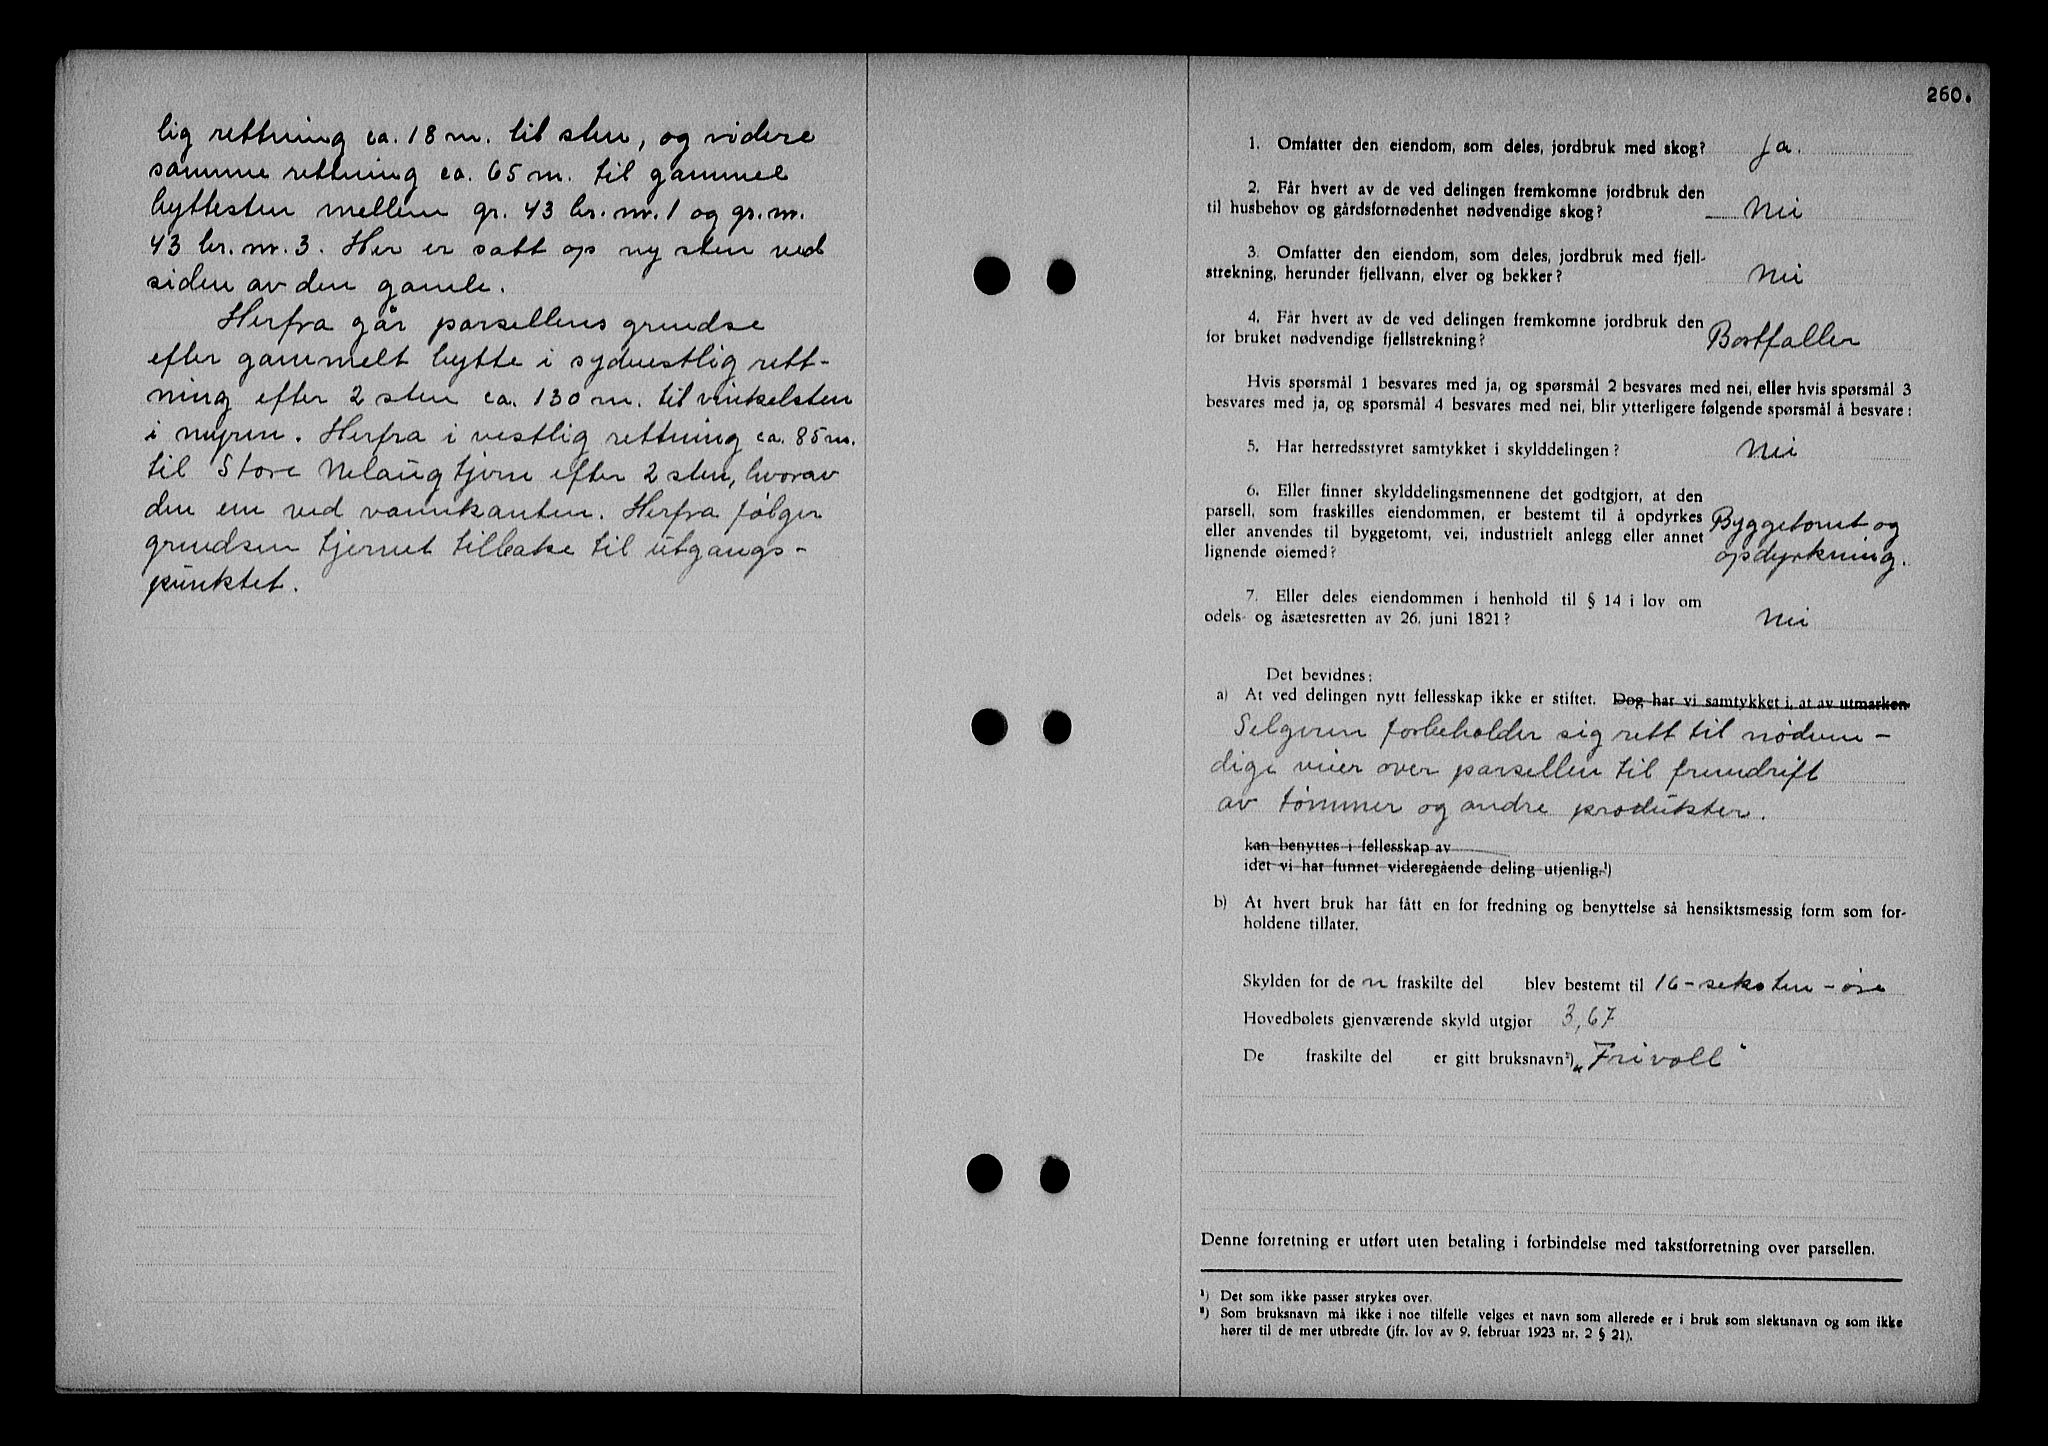 lig rettning ca. 18 m. til sten, og videre
samme rettning ca. 65 m. til gammel
byttesten mellem gr. 43 br. nr. 1 og gr. nr.
43 br. nr. 3. Her er satt op ny sten ved
siden av den gamle.
Herfra går parsellens grendse
efter gammelt bytte i sydvestlig rett-
ning efter 2 sten ca. 130 m. til vinkelsten
i myren. Herfra i vestlig rettning ca. 85 m.
til Store Nelaugtjern efter 2 sten, hvorav
den en ved vannkanten. Herfra følger
grendsen tjernet tilbake til utgangs-
punktet.
260.
1. Omfatter den eiendom, som deles, jordbruk med skog? Ja.
2. Får hvert av de ved delingen fremkomne jordbruk den
til husbehov og gårdsfornødenhet nødvendige skog? Nei
3. Omfatter den eiendom, som deles, jordbruk med fjell-
strekning, herunder fjellvann, elver og bekker? Nei
4. Får hvert av de ved delingen fremkomne jordbruk den
for bruket nødvendige fjellstrekning? Bortfaller
Hvis spørsmål 1 besvares med ja, og spørsmål 2 besvares med nei, eller hvis spørsmål 3
besvares med ja, og spørsmål 4 besvares med nei, blir ytterligere følgende spørsmål å besvare:
5. Har herredsstyret samtykket i skylddelingen? Nei
6. Eller finner skylddelingsmennene det godtgjort, at den
parsell, som fraskilles eiendommen, er bestemt til å opdyrkes
eller anvendes til byggetomt, vei, industrielt anlegg eller annet
lignende øiemed?
Byggetomt og
opdyrkning.
7. Eller deles eiendommen i henhold til § 14 i lov om
odels- og åsætesretten av 26. juni 1821? Nei
Det bevidnes:
a) At ved delingen nytt fellesskap ikke er stiftet. Dog har vi samtykket i, at av utmarken
Selgeren forbeholder sig rett til nødven-
dige veier over parsellen til fremdrift
av tømmer og andre produkter.
kan benyttes i fellesskap av
idet vi har funnet videregående deling utjenlig.¹)
b) At hvert bruk har fått en for fredning og benyttelse så hensiktsmessig form som for-
holdene tillater.
Skylden for de n fraskilte del blev bestemt til 16 - seksten - øre
Hovedbølets gjenværende skyld utgjør 3,67
De fraskilte del er gitt bruksnavn²) „Frivoll“
Denne forretning er utført uten betaling i forbindelse med takstforretning over parsellen.
¹) Det som ikke passer strykes over.
²) Som bruksnavn må ikke i noe tilfelle velges et navn som allerede er i bruk som slektsnavn og som ikke
hører til de mer utbredte (jfr. lov av 9. februar 1923 nr. 2 § 21).